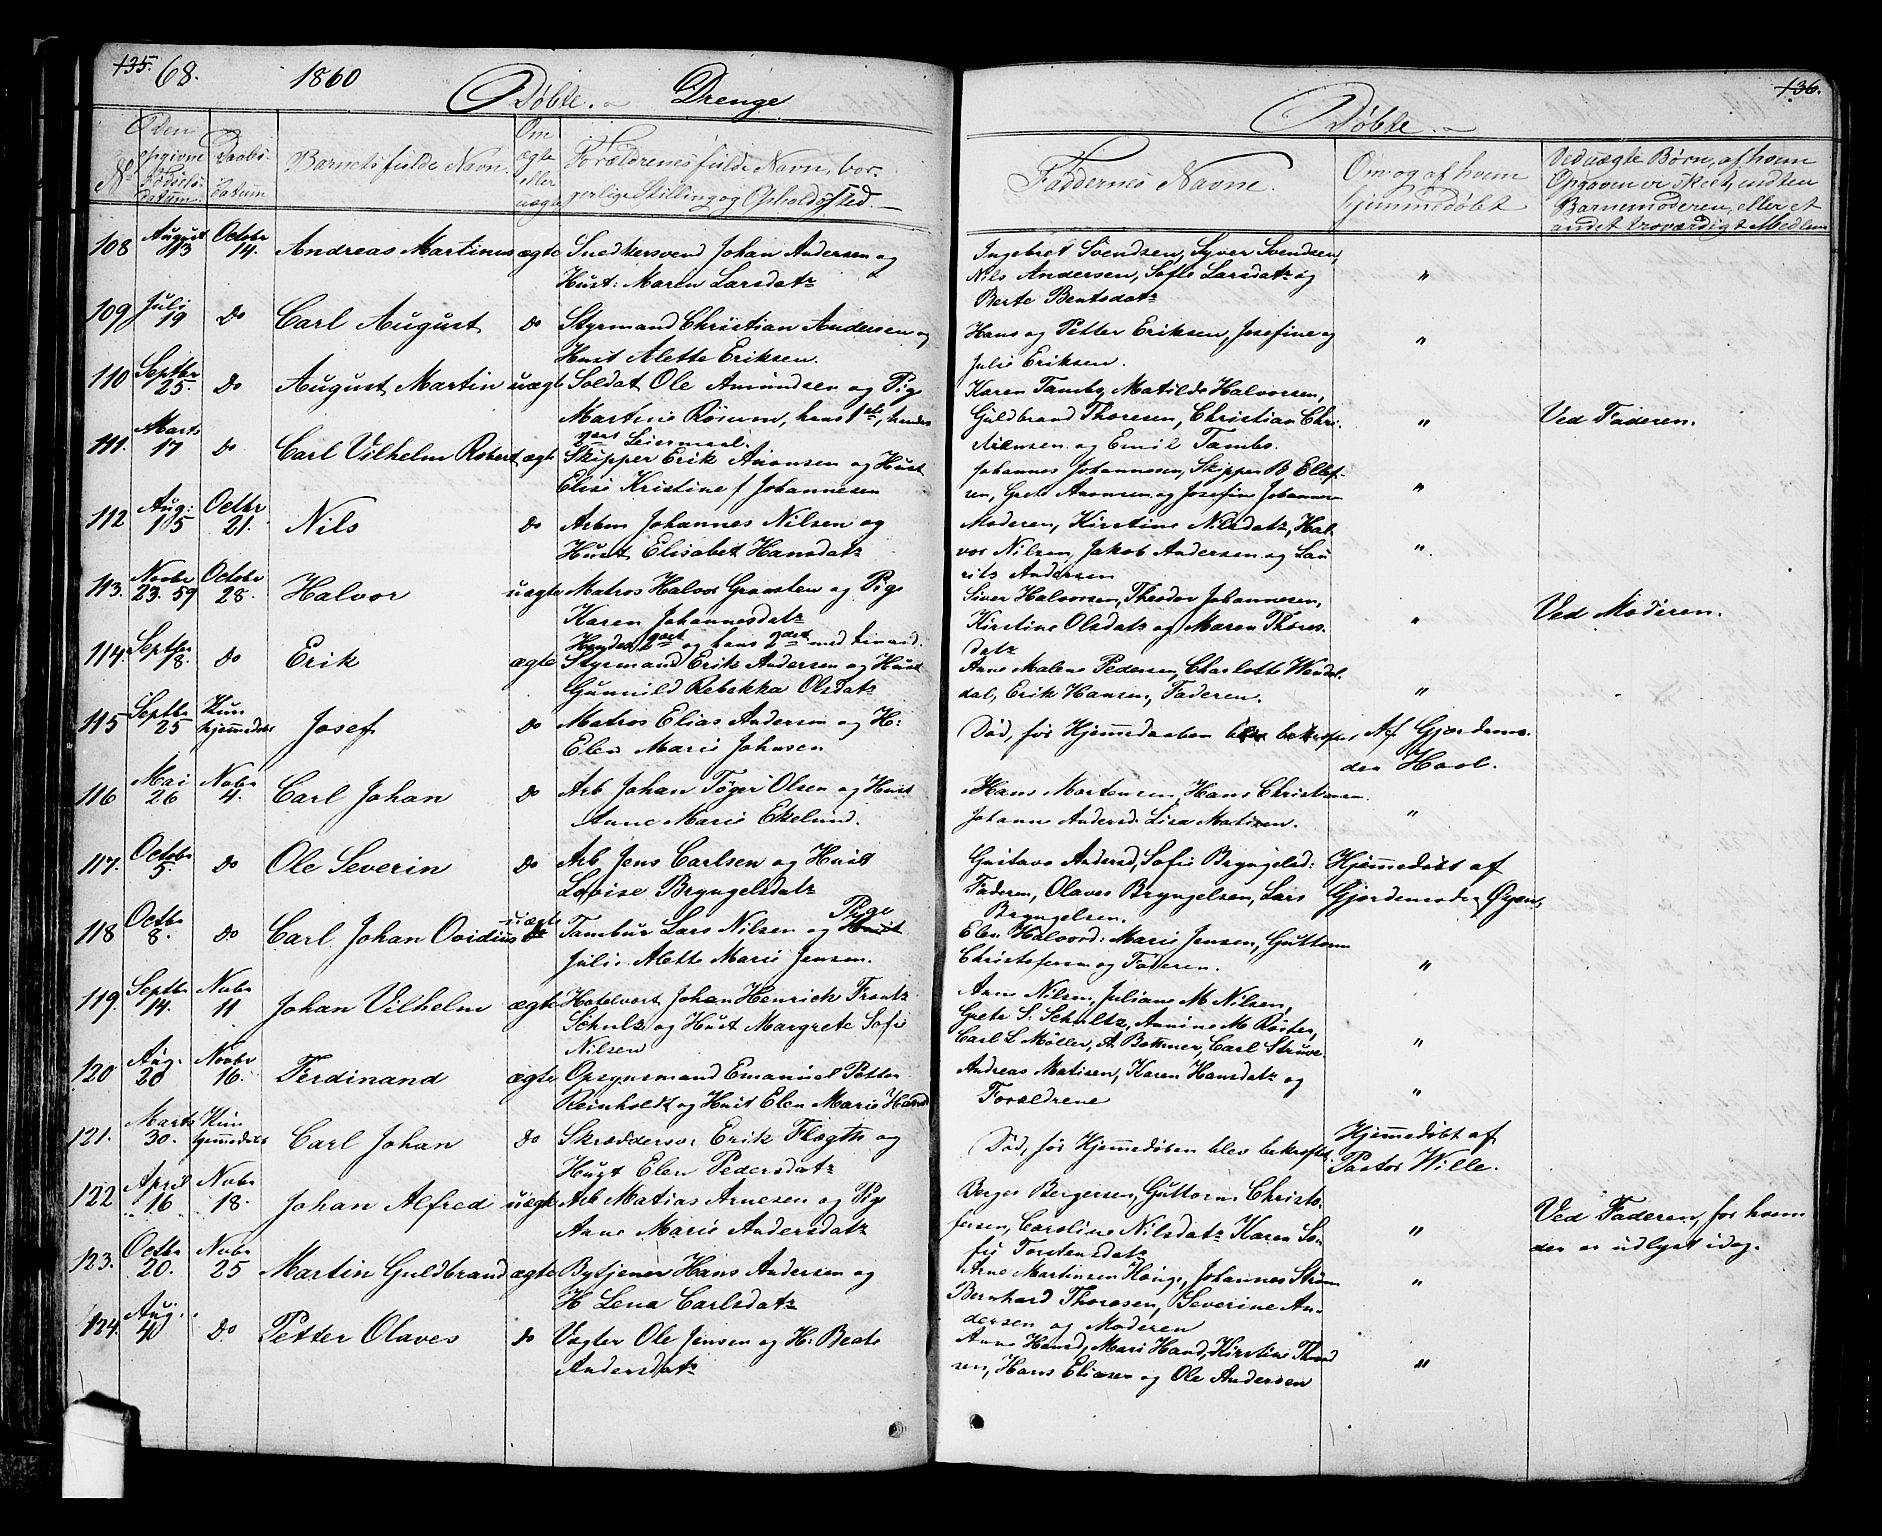 135. 68. 1860 Døbte. Drenge
No. Den opgivne Fødsels-Datum Daabs-Datum Barnets fulde Navn. Om ægte eller uægte Forældrenes fulde Navn, borgerlige Stilling og Opholdssted.
108 August 13 Octobr 14. Andreas Martinus ægte Snedkersvend Johan Andersen og
Hust: Maren Larsdatr
109 Juli 19 Do Carl August do Styrmand Christian Andersen og
Hust Alette Eriksen.
110 Septbr 25. Do August Martin uægte Soldat Ole Amundsen og Pige
Martine Røsum, hans 1ste, hendes
2det Leiermaal.
111. Marts 17 Do Carl Vilhelm Robert ægte Skipper Erik Aronsen og Hust
Elise Kristine f Johannesen
112 Aug: 15 Octbr 21. Nils do Arbm Johannes Nilsen og
Hust Elisabet Hansdatr
113. Novbr 23. 59 Octobr 28. Halvor uægte Matros Halvor Graasten og Pige
Karen Johannesdatr
Hendes 2det og hans 2det med hinand.
114. Septbr 18. Do Erik ægte Styrmand Erik Andersen og Hust
Gunnild Rebekka Olsdatr
115 Septbr 25 Kun hjemmedøbt Josef do Matros Elias Andersen og H:
Elen Marie Johnsen
116 Mai 26 Novbr 4. Carl Johan do Arb Johan Tøger Olsen og Hust
Anne Marie Ekelund.
117. Octobr 5. Do Ole Severin do Arb. Jens Carlsen og Hust
Lovise Bryngelsdatr
118 Octbr 8. Do Carl Johan Ovidius uægte do Tambur Lars Nilsen og Hust Pige
Julie Alette Marie Jensen.
119. Septbr 14. Novbr 11 Johan Vilhelm ægte Hotelvert Johan Henrich Frantz
Schulz og Hust Margrete Sofie
Nilsen
120 Aug. 20 Novbr 16. Ferdinand ægte Opsynsmand Emanuel Petter
Reinholdt og Hust Elen Marie Hansd
121. Marts 30. Kun hjemmedøbt Carl Johan Do Skræddersv Erik Flægth og
Hust Elen Pedersdatr
122 April 16 Novbr 18. Johan Alfred uægte Arb Matias Arnesen og Pige
Anne Marie Andersdatr
123. Octbr 20. Novbr 25 Martin Guldbrand ægte Bytjener Hans Andersen og
H Lena Carlsdatr
124. Aug. 4 Do Petter Olaves do Vægter Ole Jensen og H: Beate
Andersdatr
136.
Døbte.
Faddernes Navne. Om og af hvem hjemmedøbt Ved uægte Børn, af hvem Opgaven er skeet, enten Barnemoderen, eller et andet troværdigt Medlem
Ingebret Svendsen, Syver Svendsen,
Nils Andersen, Sofie Larsdatr og "
Berte Bentsdatr
Hans og Petter Eriksen, Josefine og "
Julie Eriksen.
Karen Tambo, Matilde Halvorsen,
Guldbrand Thoresen, Christian Chri- " Ved Faderen.
stensen og Emil Tambo.
Johannes Johannesen, Skipper B Ellef-
sen, Grete Aronsen og Josefine Johannesen "
Moderen, Kirstine Nilsdatr, Hal-
vor Nilsen, Jakob Andersen og Lau- "
rits Andersen
Siver Halvorsen, Theodor Johannesen,
Kirstine Olsdatr og Maren Thores- " Ved Moderen.
datr
Anne Malene Pedersen, Charlotte Wendel-
dal, Erik Hansen, Faderen. "
Død, før Hjemmedaaben blev bekræftet, Af Gjordemo-
der Hool.
Hans Mortensen, Hans Christiansen.
Johanne Andersd. Lisa Matisen. "
Gustava Andersd, Sofie Bryngelsd: Hjemmedøbt af
Faderen, Olaves Bryngelsen, Lars Gjordemoder Øyen.
Bryngelsen.
Elen Halvord: Marie Jensen, Guttorm
Christofersen og Faderen. "
Anne Nilsen, Juliane M Nilsen,
Grete S. Schultz, Annine M Røster,
Carl L Møller, A. Bohmer, Carl Struve "
Andreas Matisen, Karen Hansdatr og
Forældrene "
Død, før Hjemmedøben blev bekræftet. Hjemmedøbt af
Pastor Wille.
Berger Bergersen, Guttorm Christo-
fersen, Caroline Nilsdatr Karen So- " Ved Faderen, for hvem
fie Torstensdatr der er udlyst idag.
Arne Martinsen Hauge, Johannes Strøm "
Bernhard Thoresen, Severine An-
dersen og Moderen
Anne Hansd, Mari Hansd, Kirstine Thord
sen, Hans Eliasen og Ole Andersen "